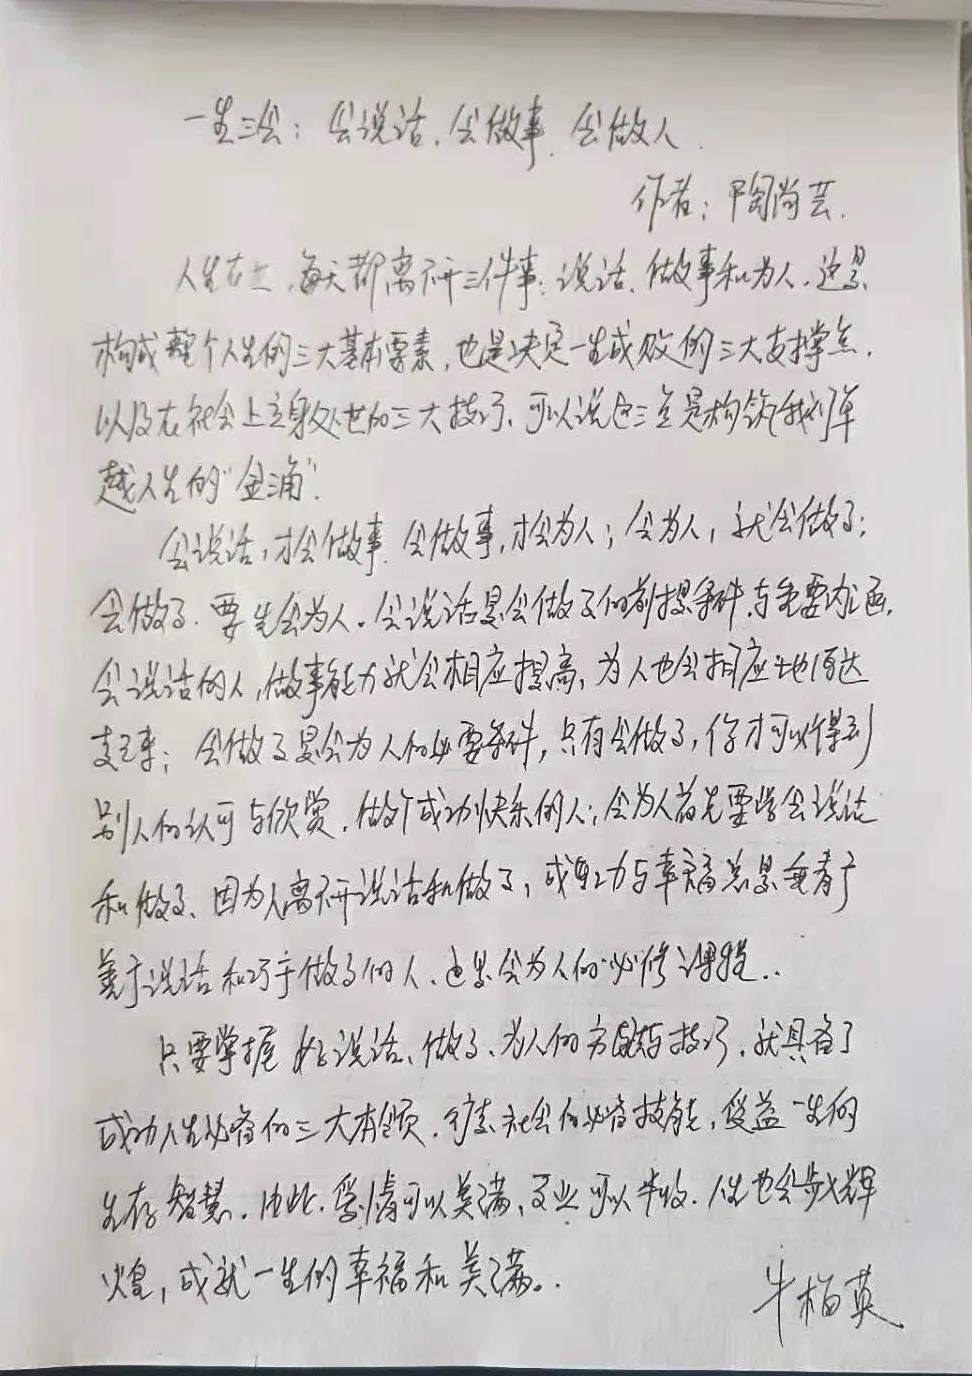 一生三会：会说话、会做事、会做人.
作者：陶尚芸.
人生在世，每天都离不开三件事：说话、做事和为人。这是
构成整个人生的三大基本要素，也是决定一生成败的三大支撑点，
以及在社会上立身处世的三大技巧、可以说这三点是构筑我们卓
越人生的“金三角”.
会说话，才会做事、会做事，才会为人；会为人，就会做事；
会做事、要先会为人。会说话是会做事的前提条件与重要
会说话的人，做事能力就会相应提高，为人也会相应地
起来；会做事是会为人的必要条件，只有会做事，你才可以得到
别人的认可与欣赏，做个成功快乐的人；会为人首先要学会说话
和做事、因为人离不开说话和做事，成功与幸福总是垂青于
善于说话和巧于做事的人、也是会为人的必修课程..
只要掌握好说话、做事、为人的方法与技巧，就具备了
成功人生必备的三大本领，社会的必备技能，受益一生的
生存智慧。由此，爱情可以美满、事业可以丰收、人生也会步入辉
煌，成就一生的幸福和美满。.
牛柏英